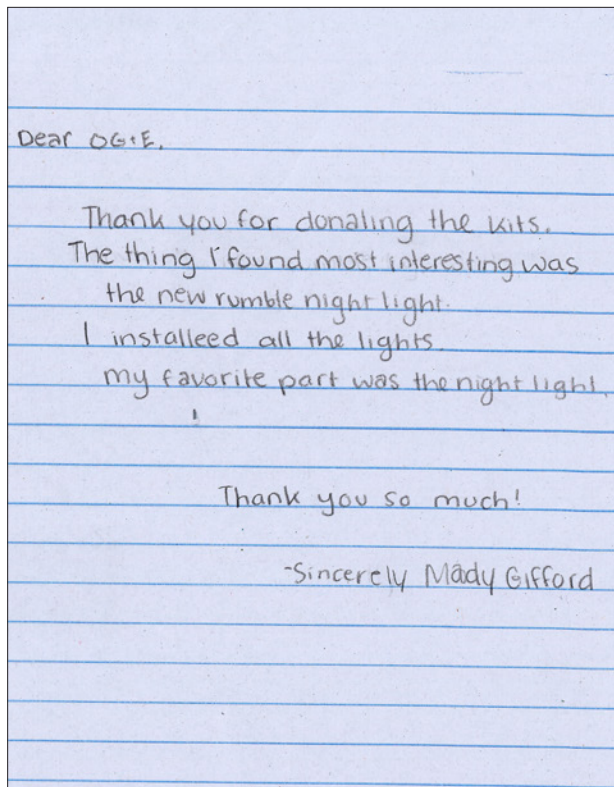 Dear OG+E,
Thank you for donating the kits.
The thing I found most interesting was
the new rumble night light.
I installeed all the lights.
my favorite part was the night light.
!
Thank you so much!
-Sincerely Mady Gifford